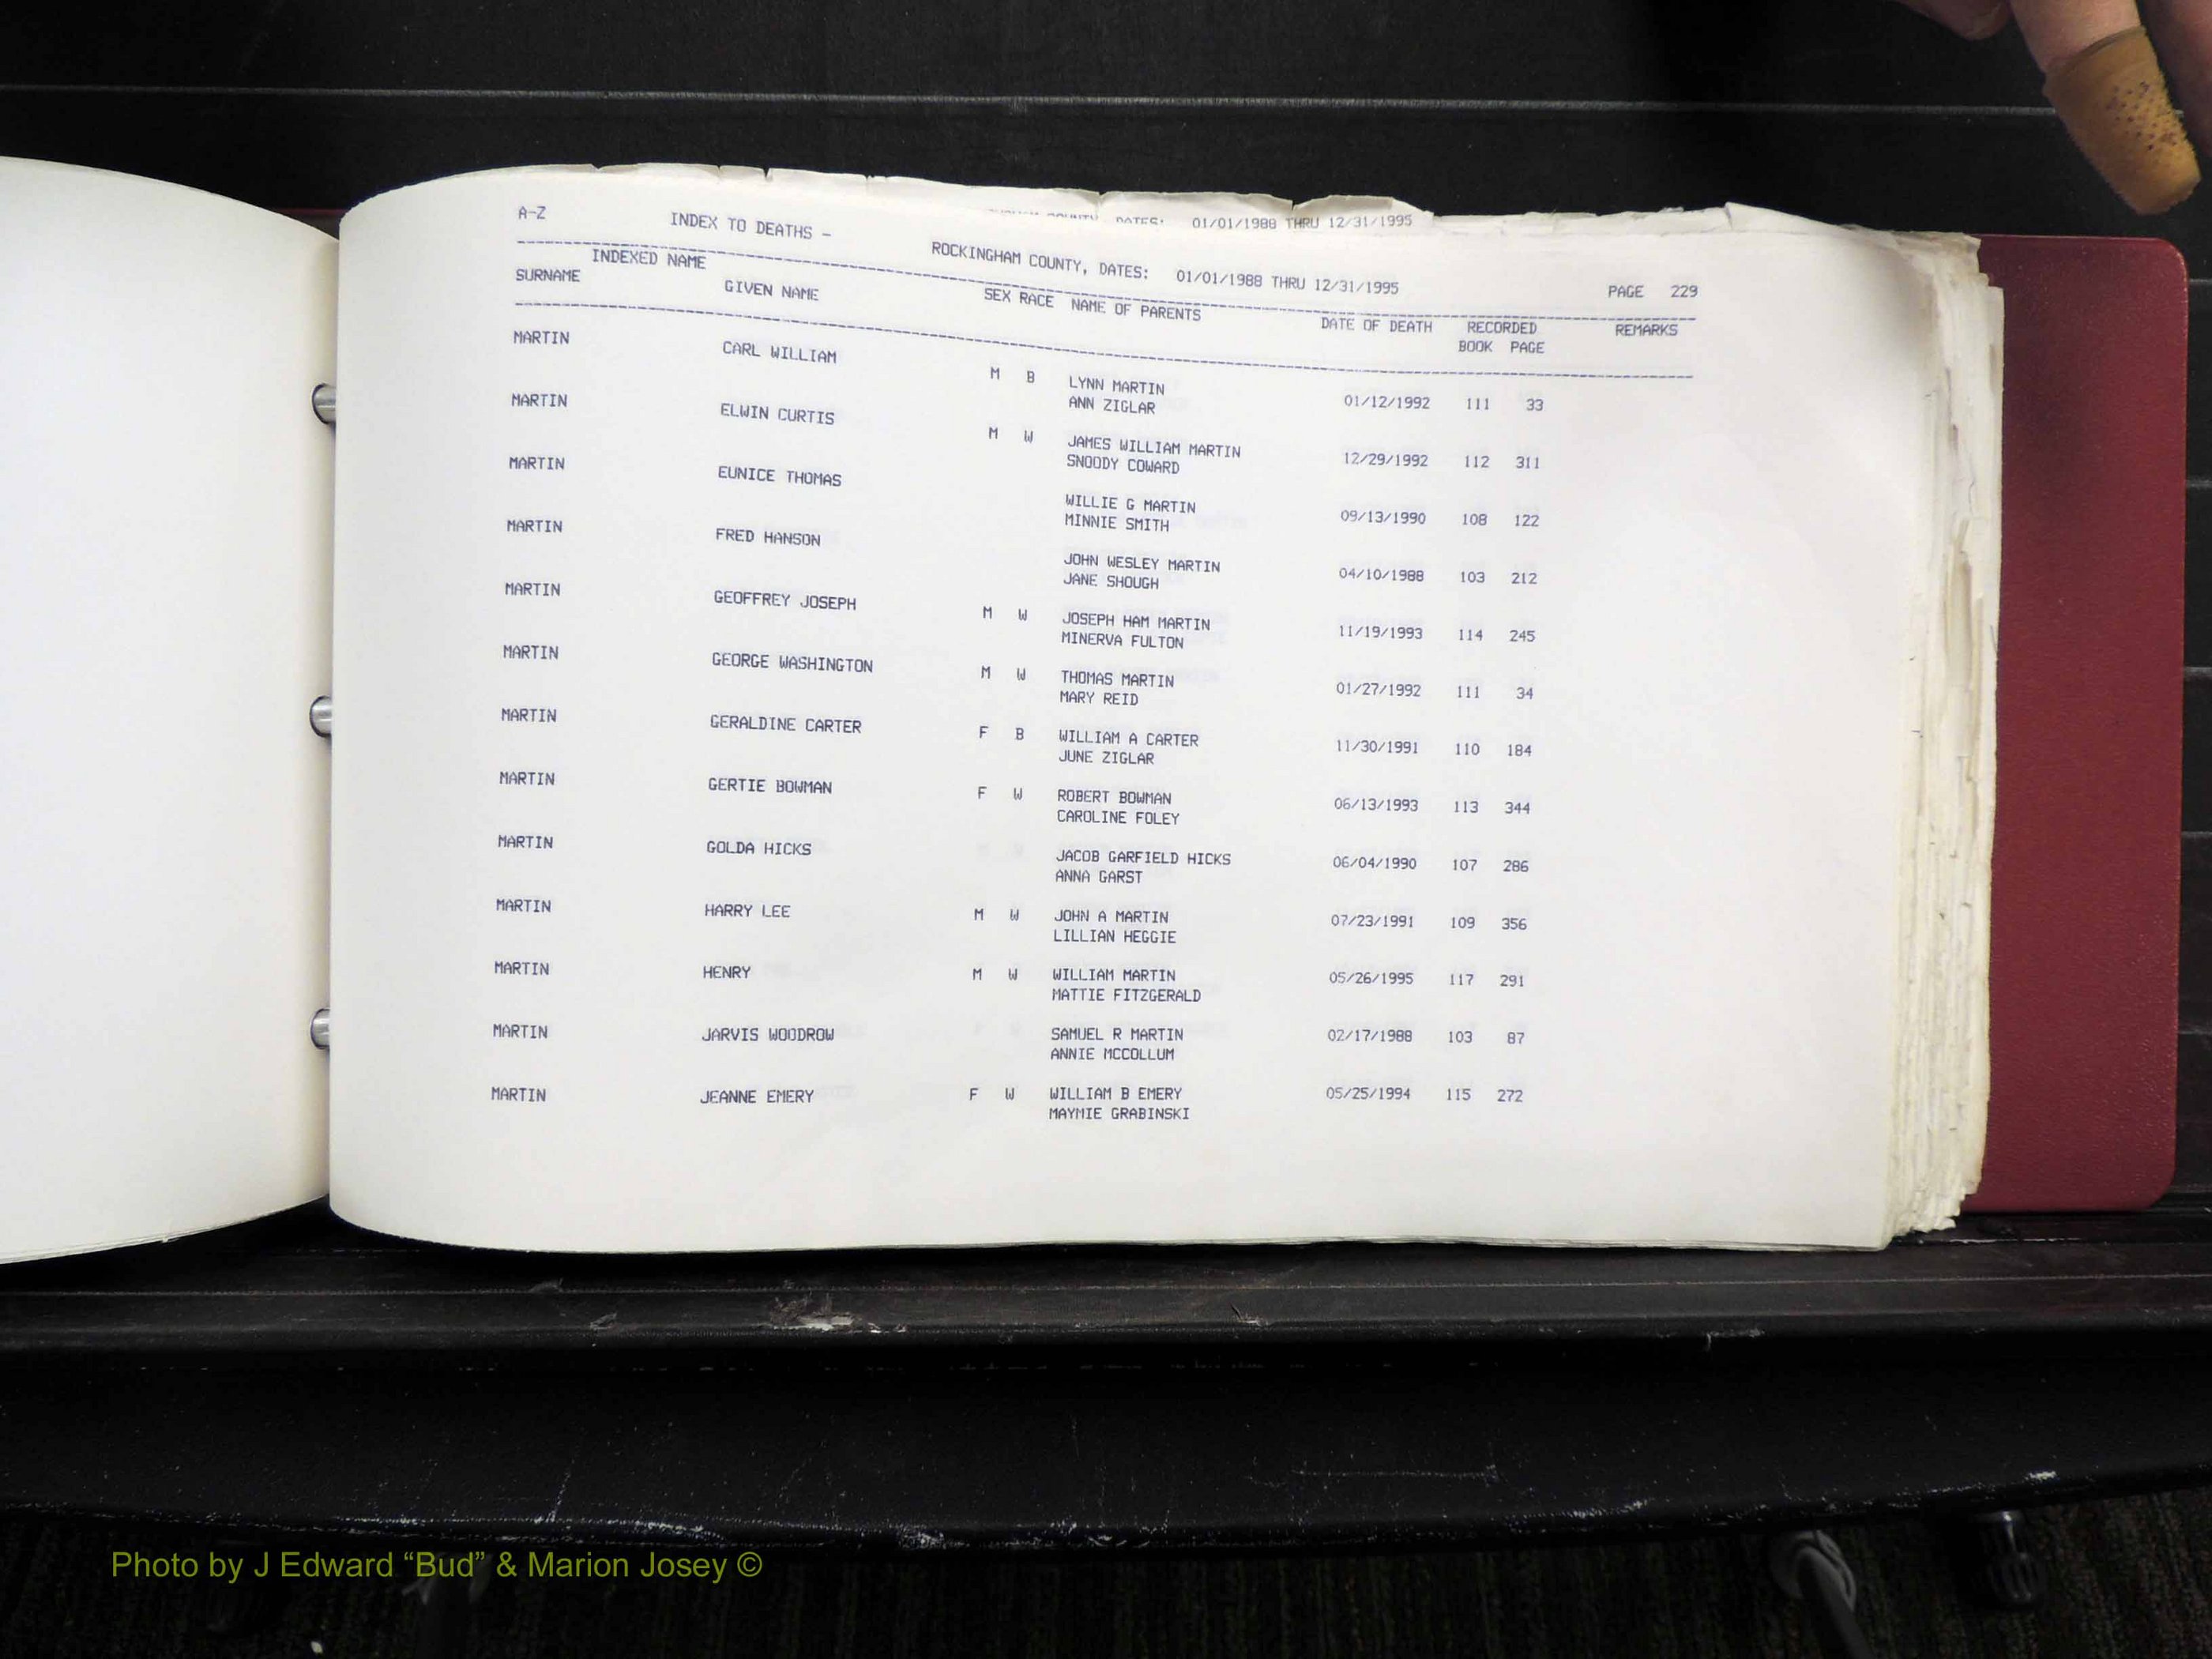 01/01/1988 THRU 12/31/1995
A-Z INDEX TO DEATHS - ROCKINGHAM COUNTY, DATES: 01/01/1988 THRU 12/31/1995 PAGE 229
INDEXED NAME
SURNAME GIVEN NAME SEX RACE NAME OF PARENTS DATE OF DEATH RECORDED REMARKS
BOOK PAGE
MARTIN CARL WILLIAM M B LYNN MARTIN 01/12/1992 111 33
ANN ZIGLAR
MARTIN ELWIN CURTIS M W JAMES WILLIAM MARTIN 12/29/1992 112 311
SNOODY COWARD
MARTIN EUNICE THOMAS WILLIE G MARTIN 09/13/1990 108 122
MINNIE SMITH
MARTIN FRED HANSON JOHN WESLEY MARTIN 04/10/1988 103 212
JANE SHOUGH
MARTIN GEOFFREY JOSEPH M W JOSEPH HAM MARTIN 11/19/1993 114 245
MINERVA FULTON
MARTIN GEORGE WASHINGTON M W THOMAS MARTIN 01/27/1992 111 34
MARY REID
MARTIN GERALDINE CARTER F B WILLIAM A CARTER 11/30/1991 110 184
JUNE ZIGLAR
MARTIN GERTIE BOWMAN F W ROBERT BOWMAN 06/13/1993 113 344
CAROLINE FOLEY
MARTIN GOLDA HICKS JACOB GARFIELD HICKS 06/04/1990 107 286
ANNA GARST
MARTIN HARRY LEE M W JOHN A MARTIN 07/23/1991 109 356
LILLIAN HEGGIE
MARTIN HENRY M W WILLIAM MARTIN 05/26/1995 117 291
MATTIE FITZGERALD
MARTIN JARVIS WOODROW SAMUEL R MARTIN 02/17/1988 103 87
ANNIE MCCOLLUM
MARTIN JEANNE EMERY F W WILLIAM B EMERY 05/25/1994 115 272
MAYMIE GRABINSKI
Photo by J Edward “Bud” & Marion Josey ©